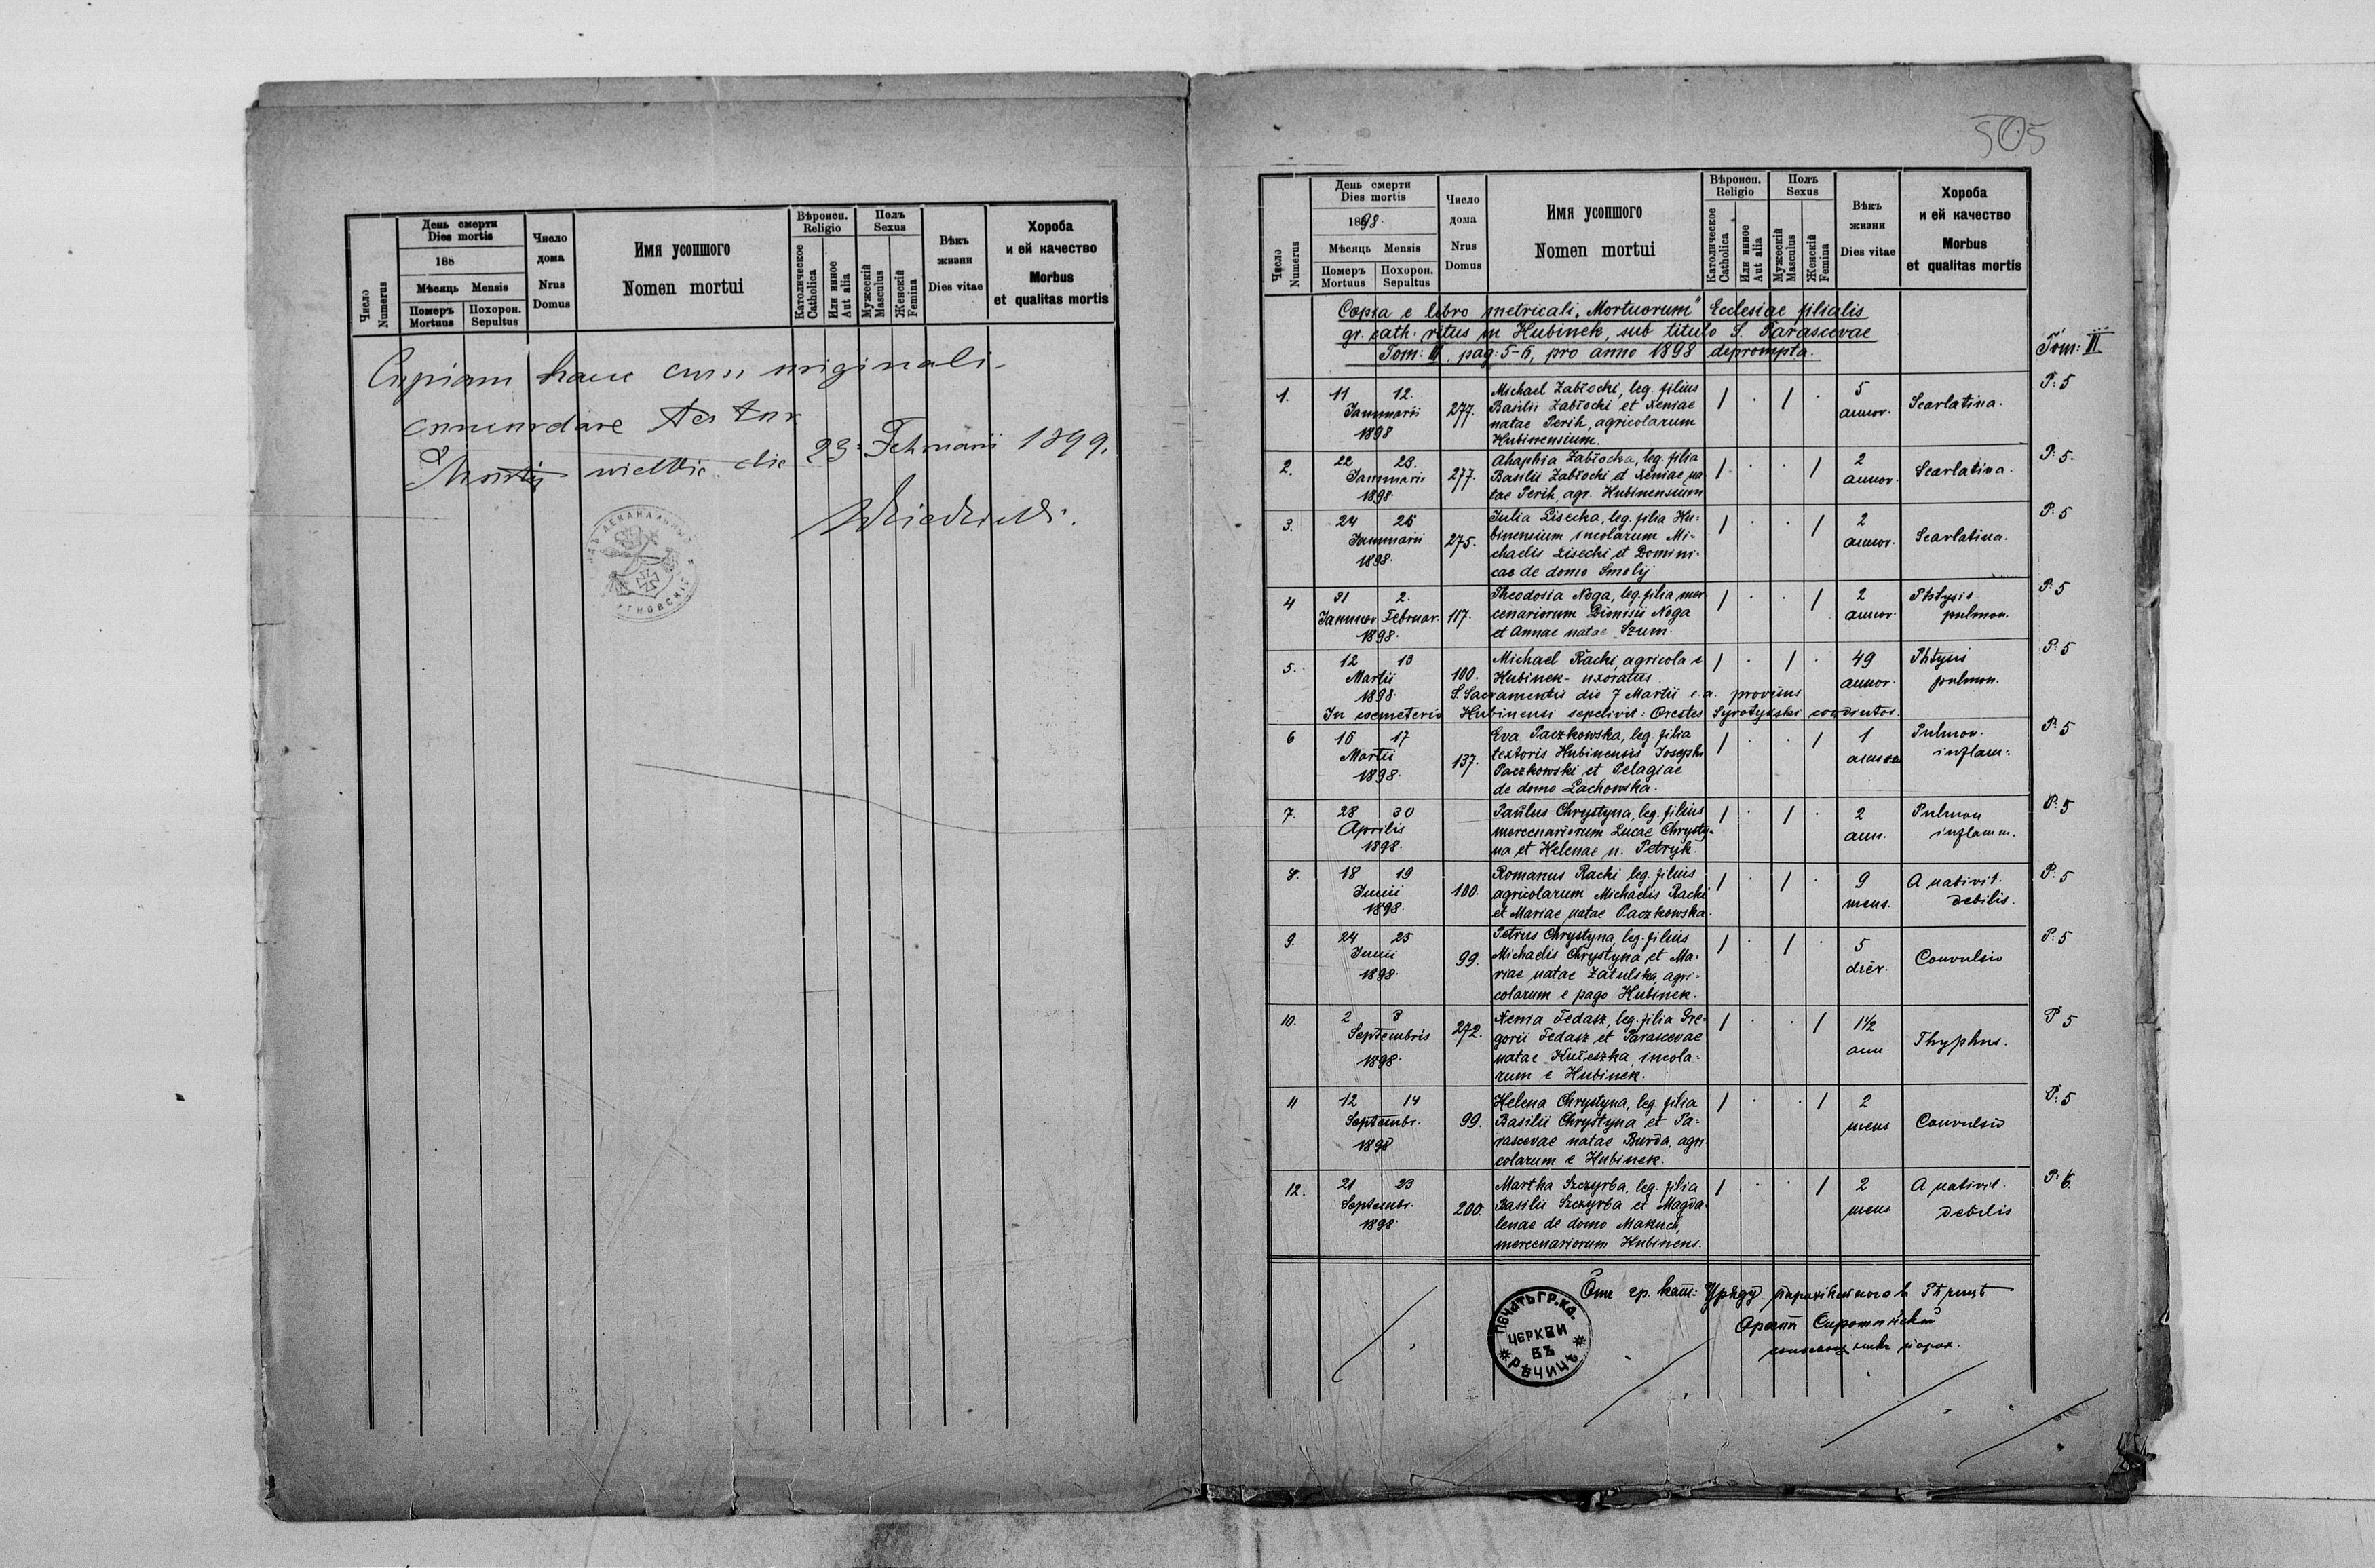 День смерти
Dies mortis
188
Мѣсяць Mensis
Померъ Похорон.
Mortuus Sepultus
Число
Numerus
Число
дома
Nrus
Domus
Имя усопшого
Nomen mortui
Вѣроисп.
Religio
Католическое
Catholica
Или инное
Aut alia
Полъ
Sexus
Мужескій
Masculus
Женскій
Femina
Вѣкъ
жизни
Dies vitae
Хороба
и ей качество
Morbus
et qualitas mortis
Copiam hanc cum originali
concordare testor
die 23 Februarii 1899.
505
Число
Numerus
День смерти
Dies mortis
1898.
Мѣсяць Mensis
Померъ Похорон.
Mortuus Sepultus
Число
дома
Nrus
Domus
Имя усопшого
Nomen mortui
Вѣроисп.
Religio
Католическое
Catholica
Или инное
Aut alia
Полъ
Sexus
Мужескій
Masculus
Женскій
Femina
Вѣкъ
жизни
Dies vitae
Хороба
и ей качество
Morbus
et qualitas mortis
Copia e libro metricali „Mortuorum" Ecclesiae filialis
gr. cath. ritus in Hubinek, sub titulo S. Parascevae
Tom: II, pag: 5-6, pro anno 1898 deprompta.
Tom: II
1. 11 12. Michael Zabłocki, leg. filius 5 P: 5
Januarii 277. Basilii Zabłocki et Xeniae annor. Scarlatina.
1898 natae Perih, agricolarum
Hubinensium.
2. 22 23. Ahaphia Zabłocka, leg. filia 2 P: 5.
Januarii 277. Basilii Zabłocki et Xeniae na annor. Scarlatina.
1898 tae Perih, agr. Hubinensium
3. 24 26 Julia Lisecka, leg. filia Hu- 2 P: 5
Januarii 275. binensium incolarum Mi- annor. Scarlatina.
1898. chaelis Lisecki et Domini-
cae de domo Smolij
4 31 2. Theodosia Noga, leg. filia mer- 2 Phtysis P: 5
Januar Februar. 117. cenariorum Dionisii Noga annor. pulmon.
1898. et Annae natae Szum.
5. 12 13 Michael Racki, agricola e 49 Phtysis P: 5
Martii 100. Hubinek - uxoratus annor. pulmon.
1898. S. Sacramentis die 7 Martii e. a. provisus
In coemeterio Hubinensi sepelivit: Orestes Syrotyński coadiutor.
6 16 17 Eva Paczkowska, leg. filia 1 Pulmon. P: 5
Martii 137. textoris Hubinensis Josephi inflam.
1898. Paczkowski et Pelagiae
de domo Lachowska.
7. 28 30 Paulus Chrystyna, leg. filius 2 Pulmon P: 5
Aprilis mercenariorum Lucae Chrysty- ann. inflamm.
1898. na et Helenae n. Petryk.
8. 18 19 Romanus Racki leg. filius 9 A nativit. P: 5
Junii 100. agricolarum Michaelis Racki mens. debilis.
1898. et Mariae natae Paczkowska.
9. 24 25 Petrus Chrystyna, leg. filius 5 P: 5
Junii 99. Michaelis Chrystyna et Ma- dier. Convulsio
1898. riae natae Zatulska, agri-
colarum e pago Hubinek.
10. 2 3 Xenia Fedasz, leg. filia Gre- 1½ P 5
Septembris 272. gorii Fedasz et Parascevae ann. Thyphus.
1898. natae Kułeszka incola-
rum e Hubinek.
11 12 14 Helena Chrystyna, leg. filia 2 P: 5
Septembr. 99. Basilii Chrystyna et Pa- mens Convulsio
1898 rascevae natae Burda, agri
colarum e Hubinek.
12. 21 23 Martha Szczyrba, leg. filia 2 A nativit. P: 6
Septembr. 200. Basilii Szczyrba et Magda- mens debilis
1898. lenae de domo Makuch,
mercenariorum Hubinens.
ПЕЧАТЬ ГР. КА.
ЦЕРКВИ
ВЪ
РѢЧИЦѢ